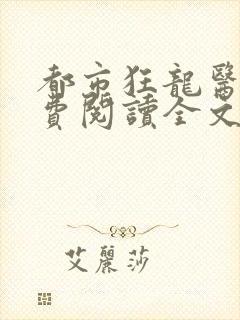 都市狂龍醫
費閱讀全文
艾麗莎